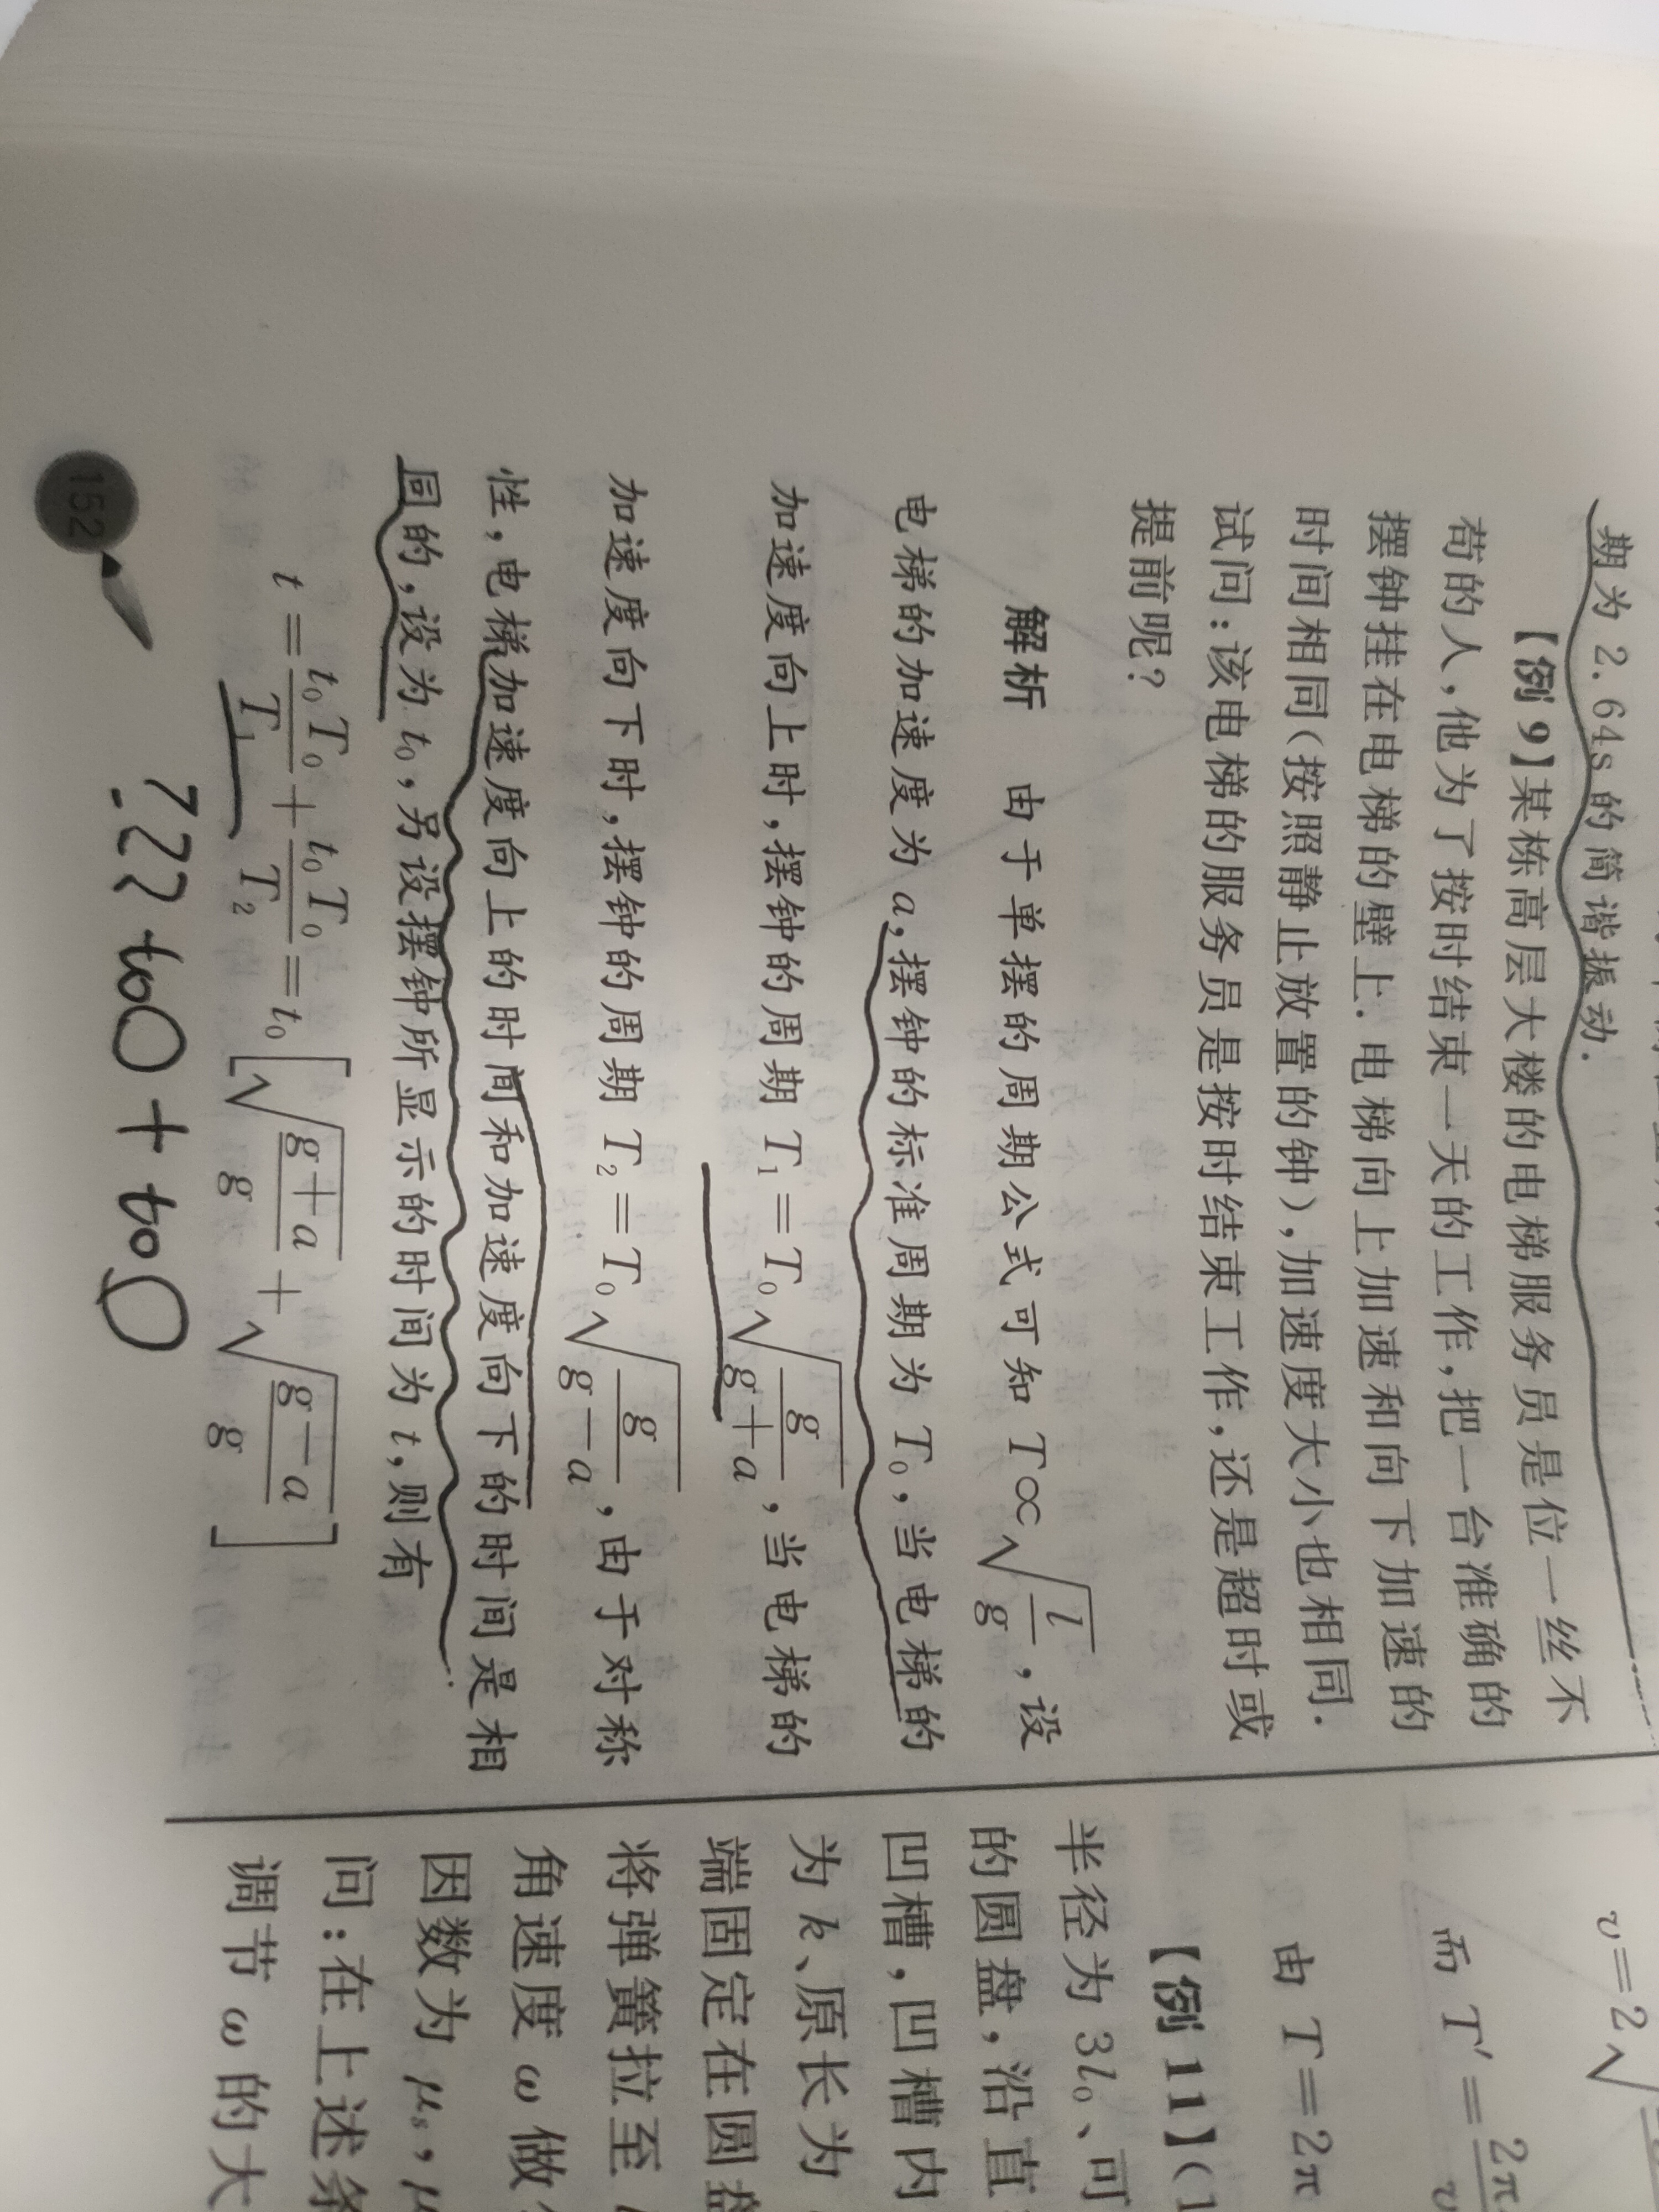 期为 2.64s 的简谐振动.
【例 9】某栋高层大楼的电梯服务员是位一丝不
苟的人,他为了按时结束一天的工作,把一台准确的
摆钟挂在电梯的壁上.电梯向上加速和向下加速的
时间相同(按照静止放置的钟),加速度大小也相同.
试问:该电梯的服务员是按时结束工作,还是超时或
提前呢?
解析 由于单摆的周期公式可知 T∝√(l/g),设
电梯的加速度为 a,摆钟的标准周期为 T₀,当电梯的
加速度向上时,摆钟的周期 T₁=T₀√(g/(g+a)),当电梯的
加速度向下时,摆钟的周期 T₂=T₀√(g/(g−a)),由于对称
性,电梯加速度向上的时间和加速度向下的时间是相
同的,设为 t₀,另设摆钟所显示的时间为 t,则有
t=t₀T₀/T₁+t₀T₀/T₂=t₀[√((g+a)/g)+√((g−a)/g)]
152
v=2√
而 T′=2π
由 T=2π
【例 11】(1
半径为 3l₀、可
的圆盘,沿直
凹槽,凹槽内
为 k、原长为
端固定在圆盘
将弹簧拉至
角速度 ω 做
因数为 μₛ,μ
问:在上述条
调节 ω 的大